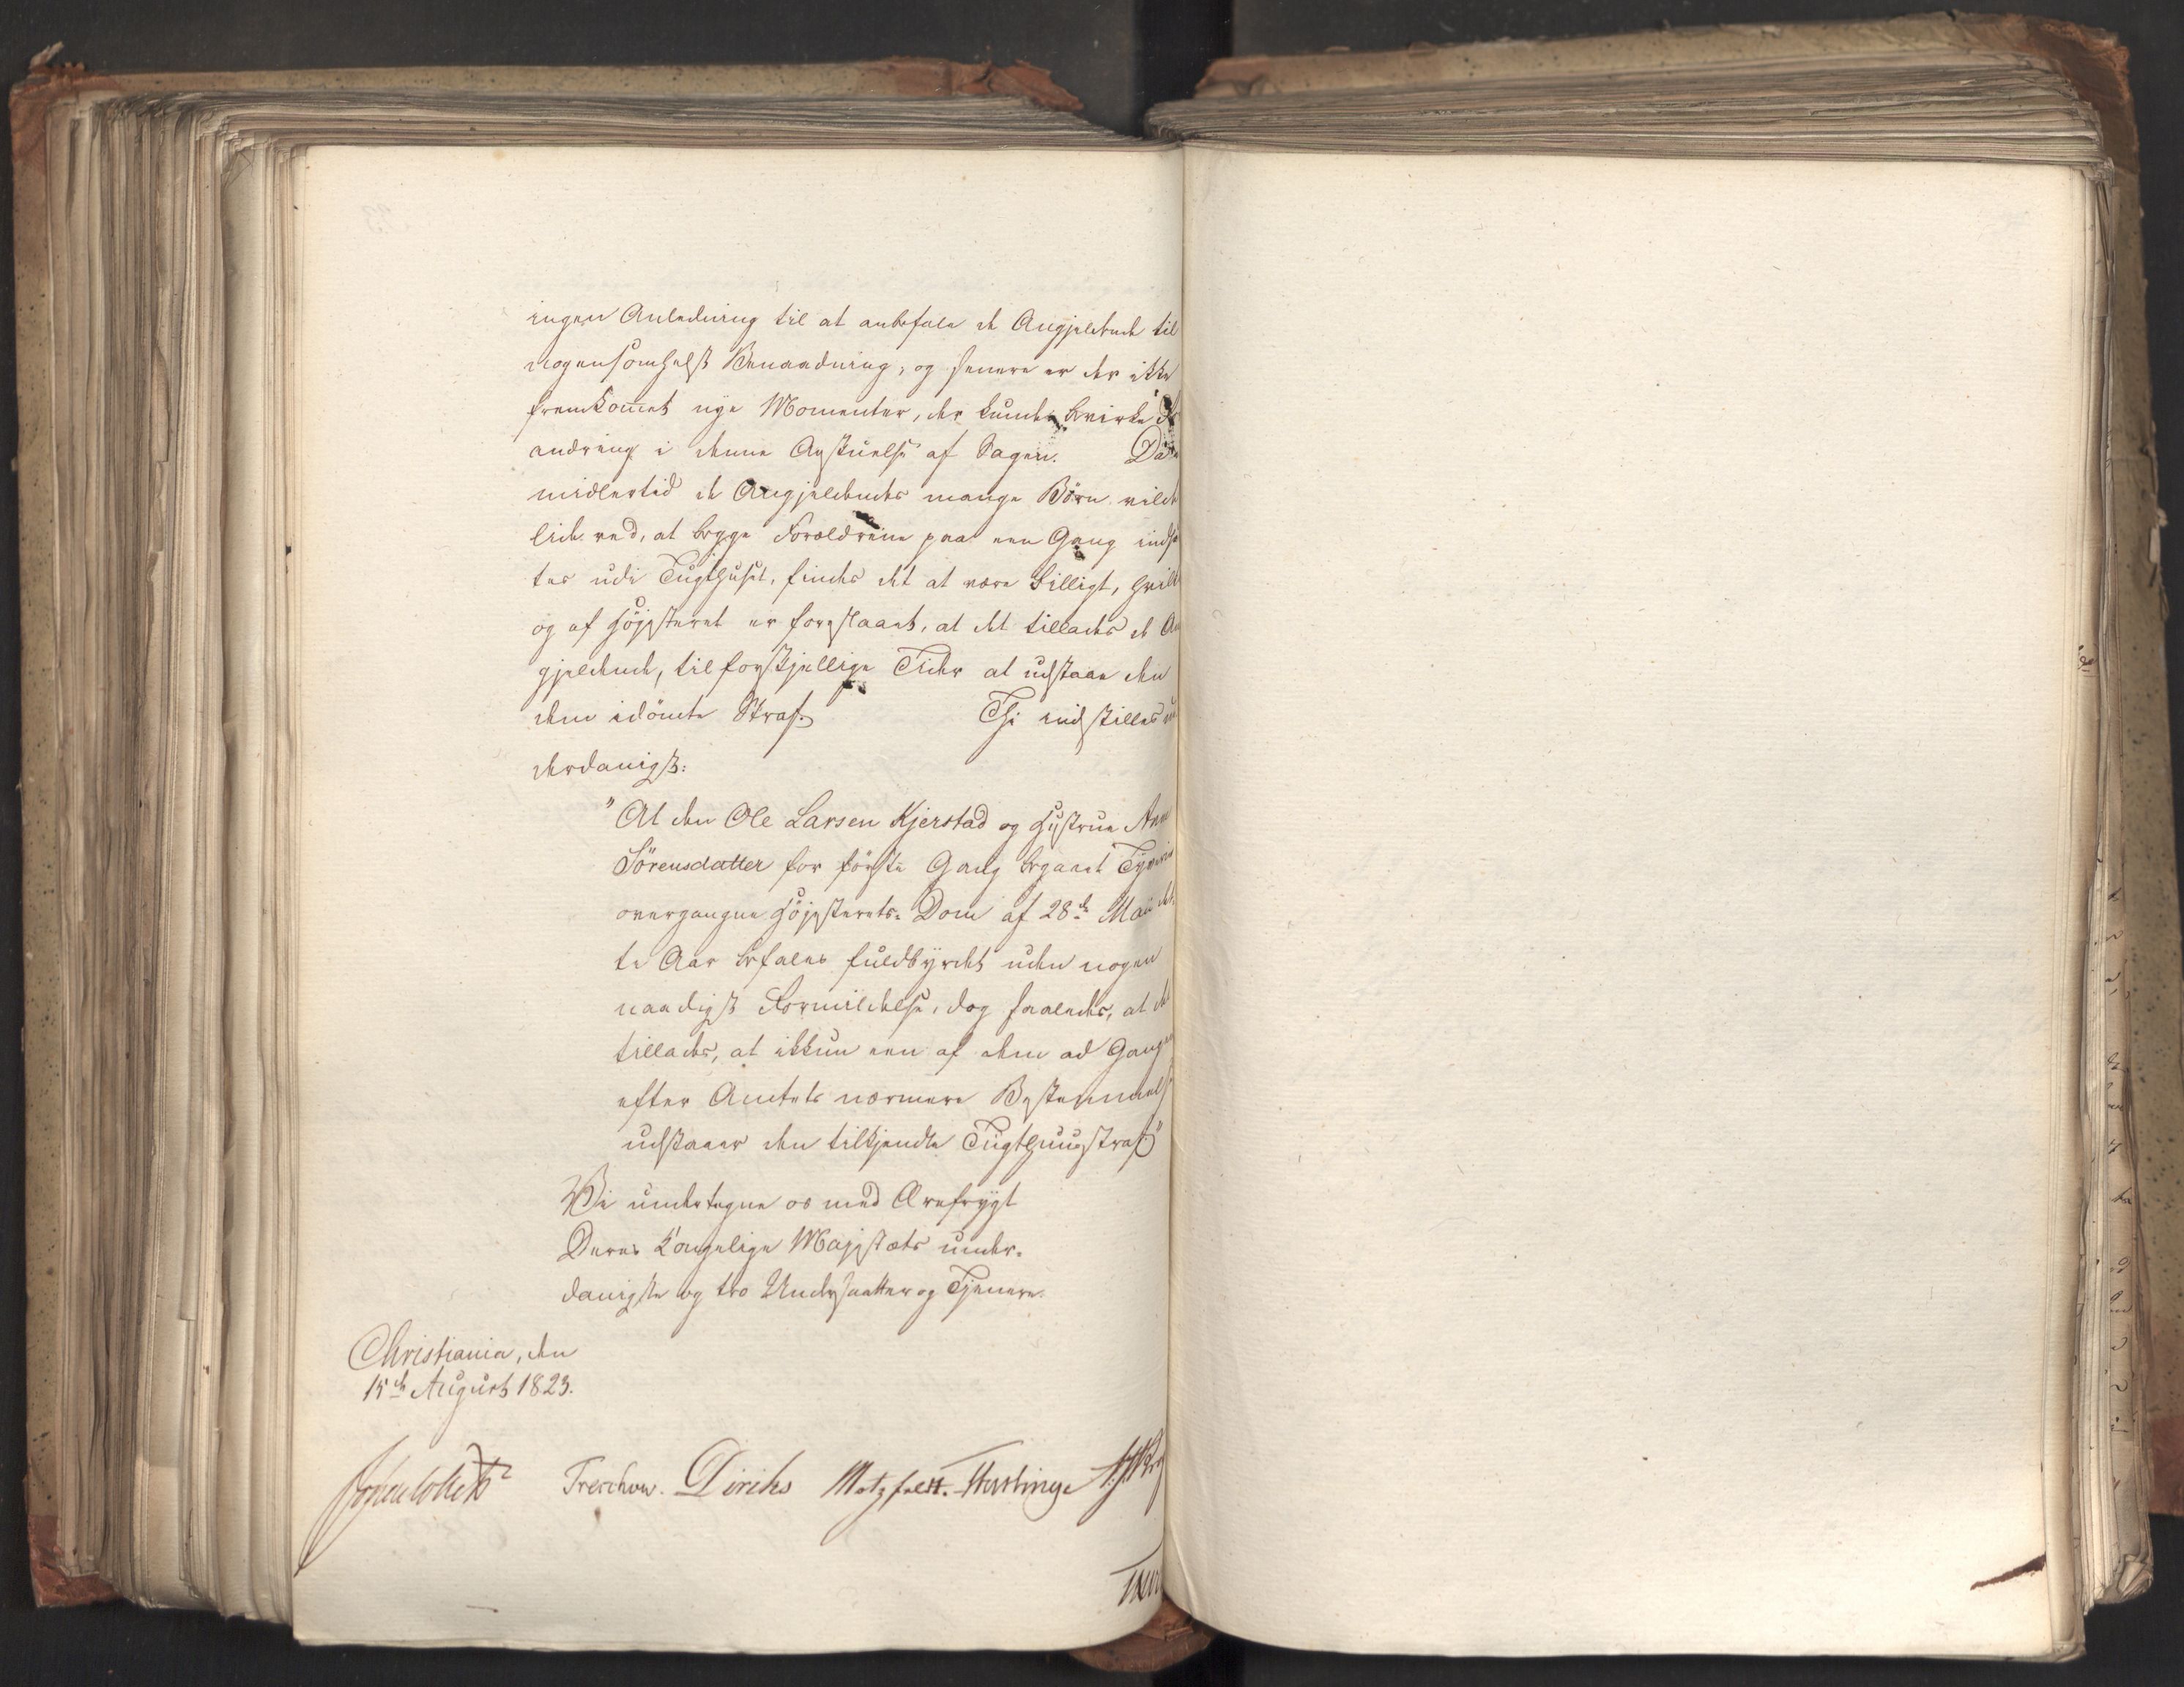 ingen Anledning til at anbefale de Angjeldende til
nogensomhelst Benaadning, og senere er der ikke
fremkom̅et nye Momenter, der kunde bevirke
andring i denne Anskuelse af Sagen. Da
midlertid de Angjeldendes mange Börn vilde
lide ved, at begge Forældrene paa een Gang indsæ
tes udi Tugthuset, findes det at være billigt, hvilk
og af Höjesteret er foreslaaet, at det tillades de An
gjeldende, til forskjellige Tider at udstaae den
dem idömte Straf. Thi indstilles un
derdanigst:
"At den Ole Larsen Kjerstad og Hustrue Anne
Sörensdatter for förste Gang begaaet Tyverie
overgangne Höjesterets-Dom af 28de Maii det-
te Aar befales fuldbyrdet uden nogen
naadigst Formildelse, dog saaledes, at det
tillades, at ikkun een af dem ad Gangen
efter Amtets nærmere Bestemmelse
udstaaer den tilkjendte Tugthuusstraf"
Vi undertegne os med Ærefrygt
Deres Kongelige Majestæts under-
danigste og tro Undersaatter og Tjenere.
Christiania, den
15de August 1823.
JCollett Treschow. Diriks Motzfeldt. Hartung